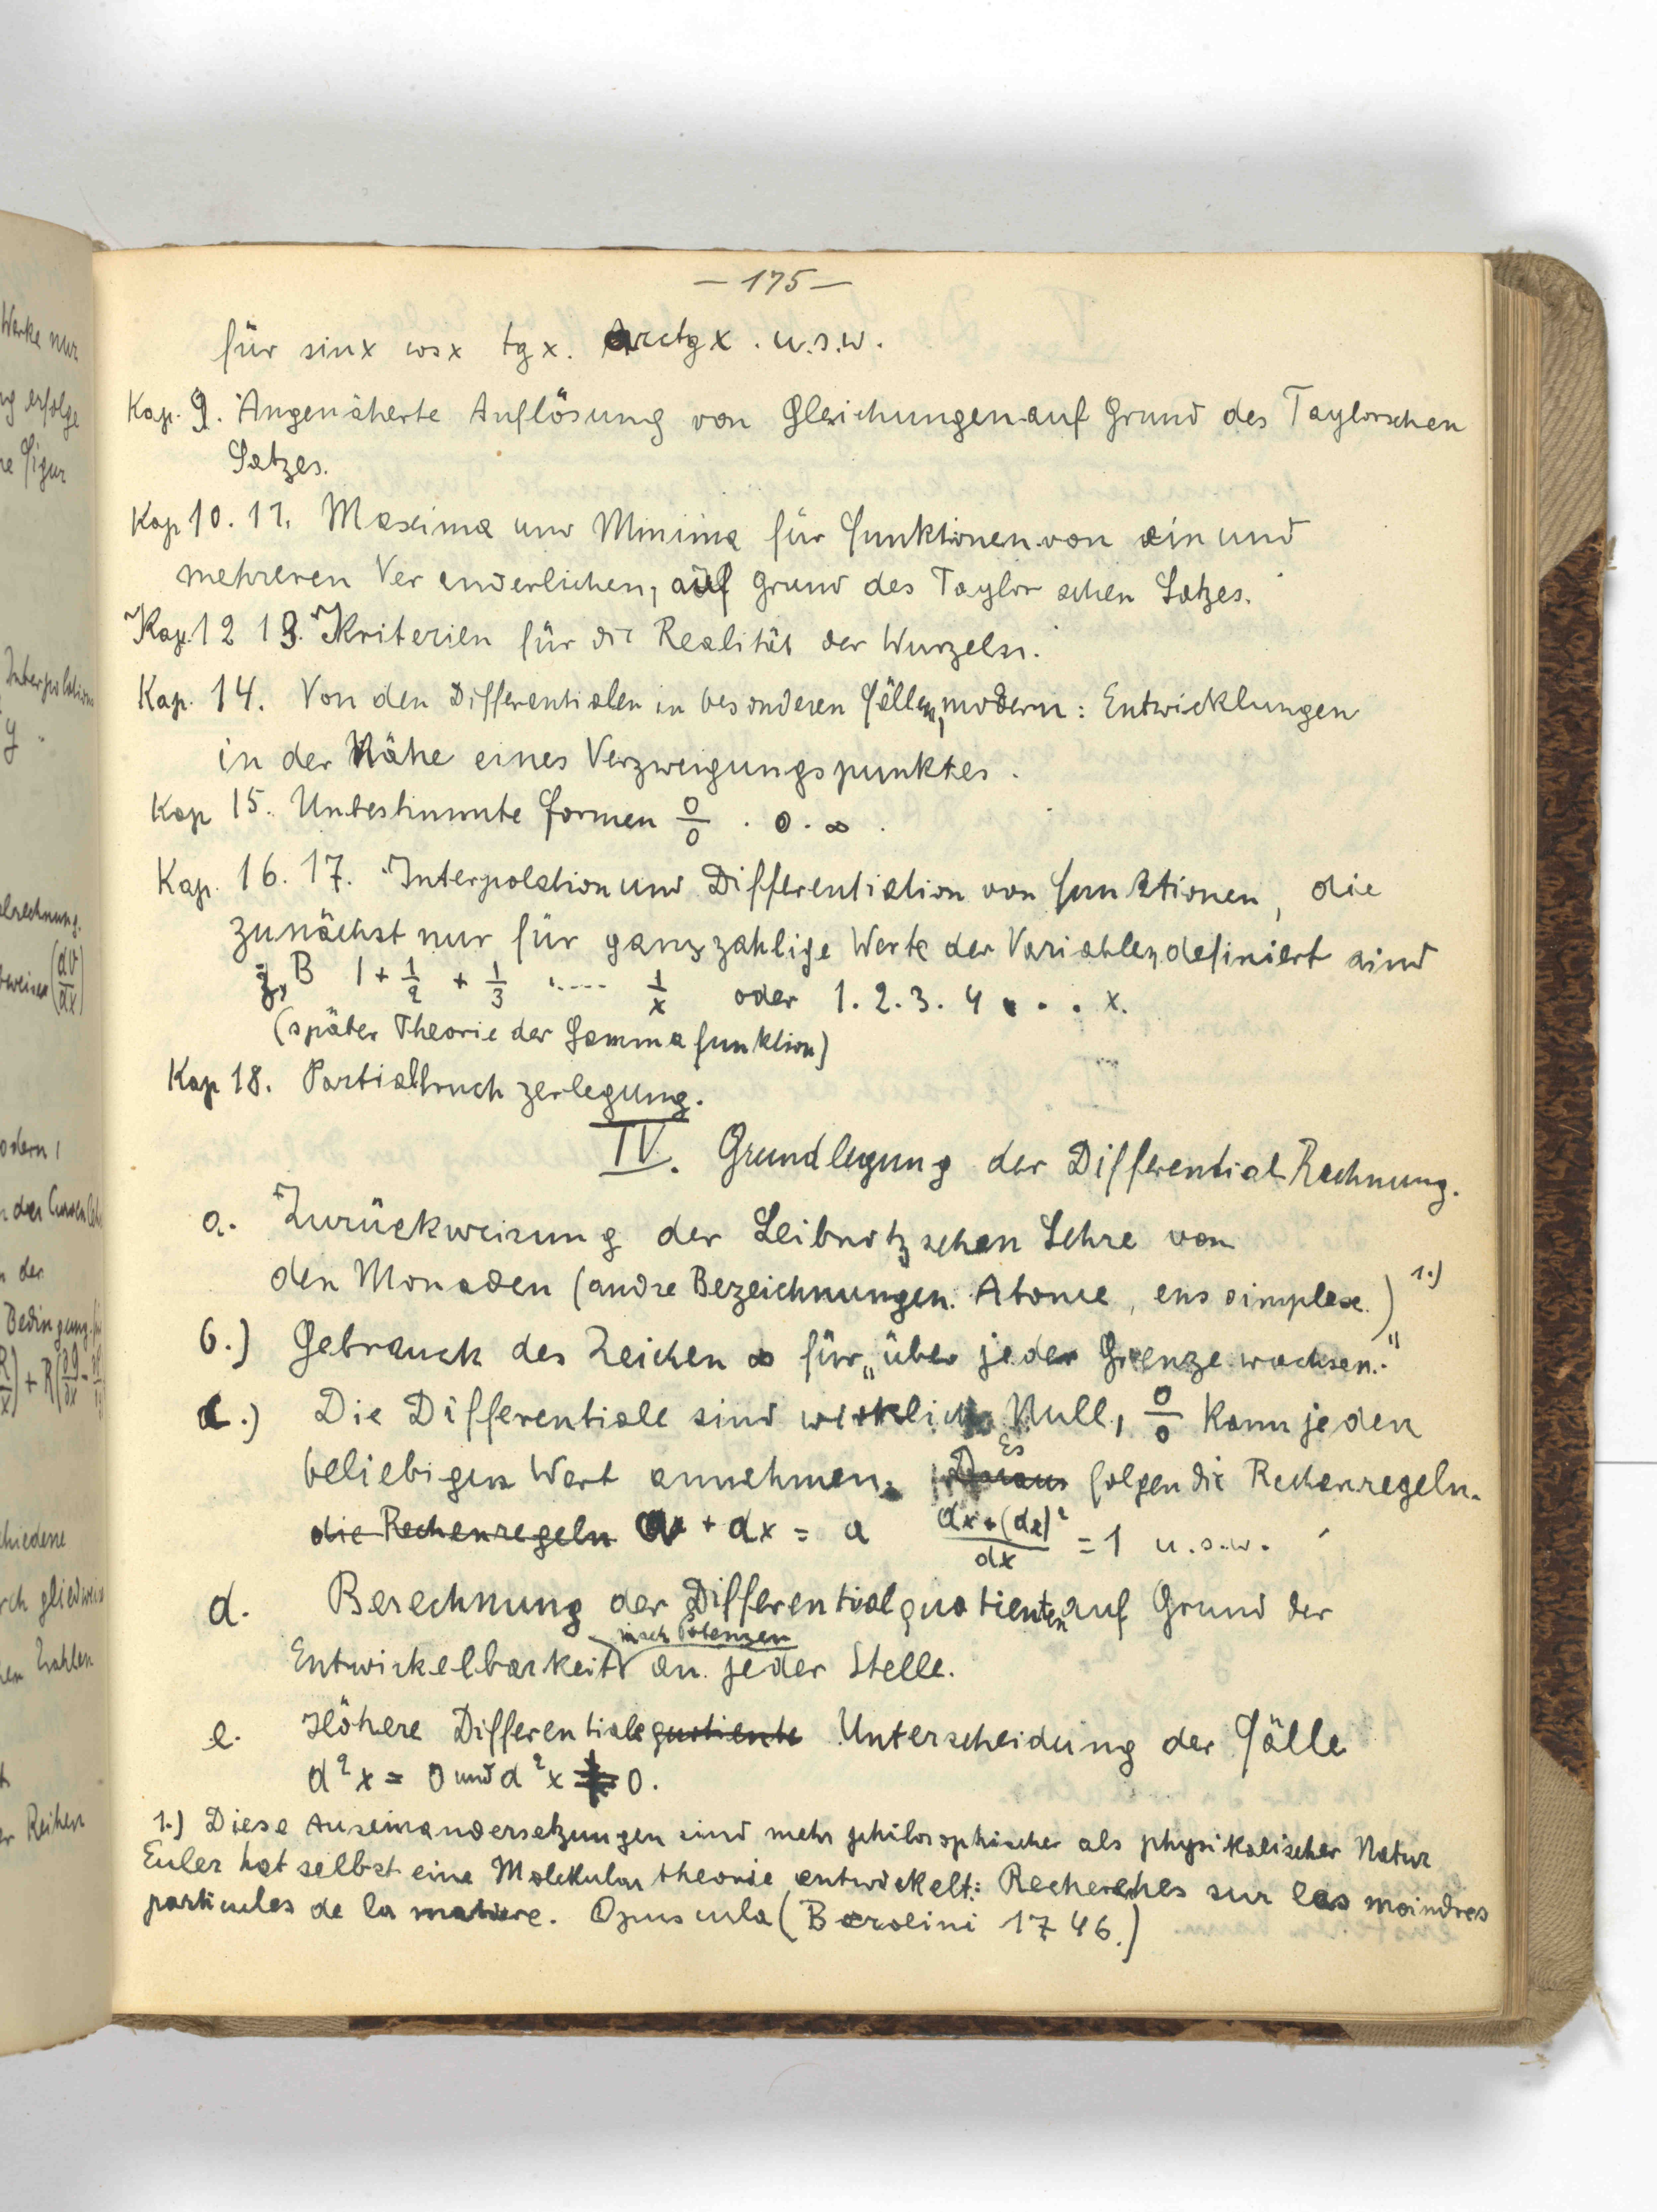 — 175 —
für sin x cos x tg x. Arctg x. u.s.w.
Kap. 9. Angenäherte Auflösung von Gleichungen auf Grund des Taylorschen
Satzes.
Kap 10. 11. Maxima und Minima für Funktionen von ein und
mehreren Veränderlichen, auf Grund des Taylor schen Satzes.
Kap. 12 13. Kriterien für die Realität der Wurzeln.
Kap. 14. Von den Differentialen in besonderen Fällen, modern: Entwicklungen
in der Nähe eines Verzweigungspunktes.
Kap 15. Unbestimmte Formen 0/0 . 0.∞.
Kap. 16. 17. Interpolation und Differentiation von Funktionen, die
zunächst nur für ganzzahlige Werte der Variablen definiert sind
z. B 1 + 1/2 + 1/3 ..... 1/x oder 1. 2. 3. 4 . . . x.
(später Theorie der Gamma funktion)
Kap 18. Partialbruch zerlegung.
IV. Grundlegung der Differential Rechnung.
a. Zurückweisung der Leibnitz schen Lehre von
den Monaden (andre Bezeichnungen. Atome, ens simplex.) 1.)
b.) Gebrauch des Zeichen ∞ für „über jeder Grenze wachsen."
c.) Die Differentiale sind wirklich Null, 0/0 kann jeden
beliebigen Wert annehmen. Daraus Es folgen die Rechenregeln.
die Rechenregeln a + dx = a (dx + (dx)²)/dx = 1 u.s.w.
d. Berechnung der Differentialquotienten auf Grund der
nach Potenzen
Entwickelbarkeit an jeder Stelle.
e. Höhere Differentialequotiente Unterscheidung der Fälle
d²x = 0 und d²x ≠ 0.
1.) Diese Auseinandersetzungen sind mehr philosophischer als physikalischer Natur
Euler hat selbst eine Molekular theorie entwickelt: Recherches sur les moindres
particules de la matiere. Opuscula (Berolini 1746.)
Werke nur
erfolge
Figur
Interpolation
y.
dV/dx
der
Bedingung
gliedweise
Zahlen
Reihen